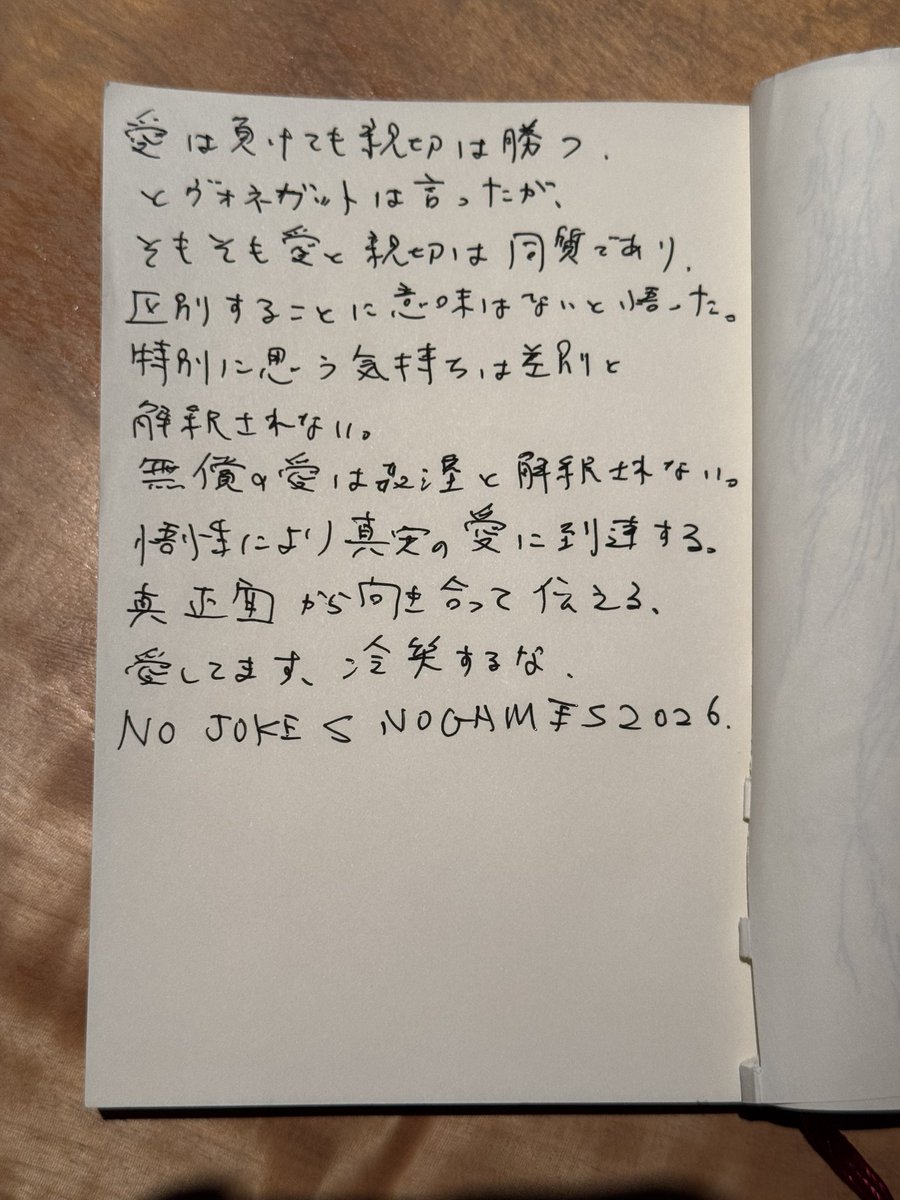 愛は負けても親切は勝つ.
とヴォネガットは言ったが、
そもそも愛と親切は同質であり.
区別することに意味はないと悟った。
特別に思う気持ちは差別と
解釈されない。
無償の愛は と解釈されない。
悟性により真実の愛に到達する。
真正面から向き合って伝える、
愛してます、冷笑するな.
NO JOKES NOGAMES2026.